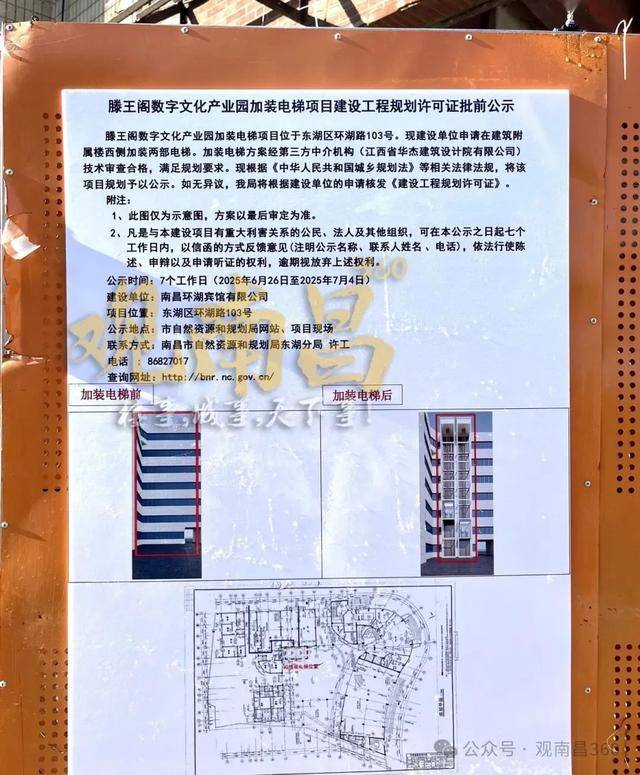 滕王阁数字文化产业园加装电梯项目建设工程规划许可证批前公示
滕王阁数字文化产业园加装电梯项目位于东湖区环湖路103号。现建设单位申请在建筑附
属楼西侧加装两部电梯。加装电梯方案经第三方中介机构（江西省华杰建筑设计院有限公司）
技术审查合格，满足规划要求。现根据《中华人民共和国城乡规划法》等相关法律法规，将该
项目规划予以公示。如无异议，我局将根据建设单位的申请核发《建设工程规划许可证》。
附注：
1、此图仅为示意图，方案以最后审定为准。
2、凡是与本建设项目有重大利害关系的公民、法人及其他组织，可在本公示之日起七个
工作日内，以信函的方式反馈意见(注明公示名称、联系人姓名、电话)，依法行使陈
述、申辩以及申请听证的权利，逾期视放弃上述权利。
公示时间：7个工作日（2025年6月26日至2025年7月4日）
建设单位：南昌环湖宾馆有限公司
项目位置：东湖区环湖路103号
公示地点：市自然资源和规划局网站、项目现场
联系方式：南昌市自然资源和规划局东湖分局 许工
电话 ：86827017
查询网址：http://bnr.nc.gov.cn/
观南昌360
加装电梯前
加装电梯后
公众号·观南昌360